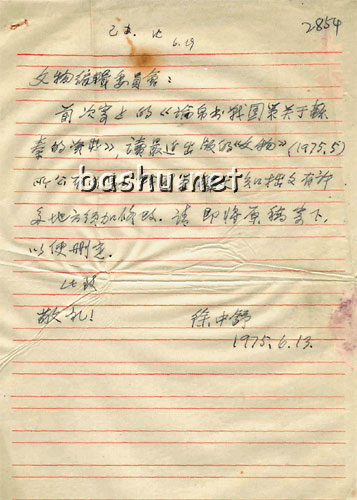 2854
6.19
文物编辑委员会：
前次寄上的《论帛书战国策关于苏
秦的资料》，读最近出版的《文物》(1975.5)
所公布
bashu.net
知拙文有许
多地方须加修改．请即将原稿寄下，
以便删定．
此致
敬礼！
徐中舒
1975.6.13.